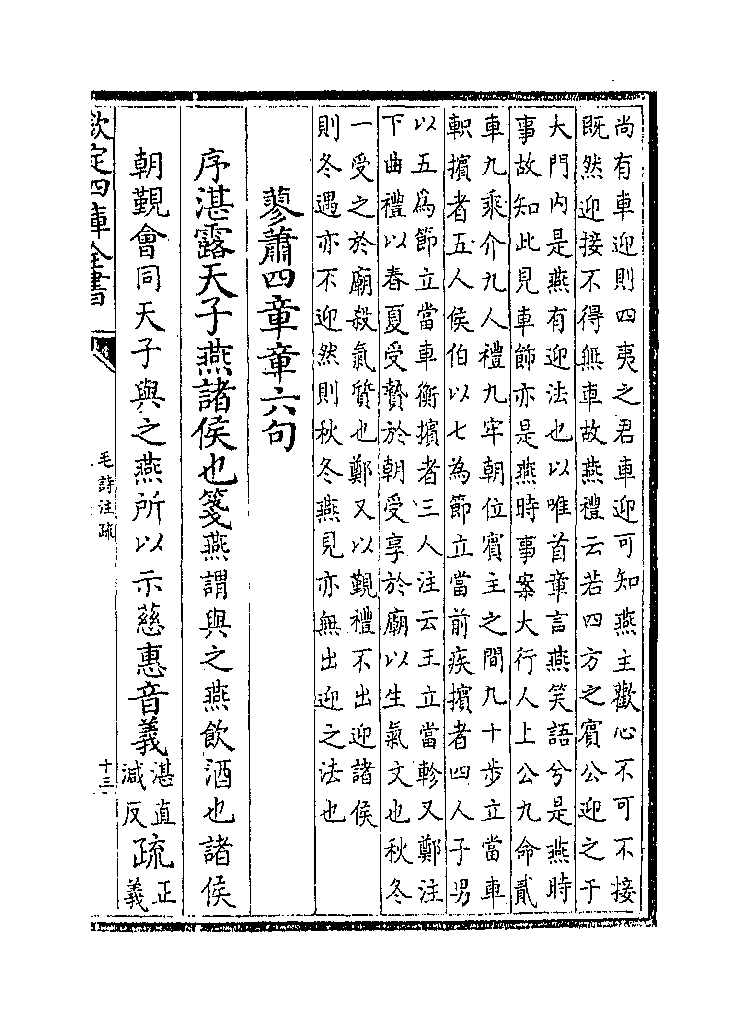 尚有車迎則四夷之君車迎可知燕主歡心不可不接
既然迎接不得無車故燕禮云若四方之賓公迎之于
大門内是燕有迎法也以唯首章言燕笑語兮是燕時
事故知此見車飾亦是燕時事案大行人上公九命貳
車九乘介九人禮九牢朝位賓主之間九十步立當車
軹擯者五人侯伯以七為節立當前疾擯者四人子男
以五爲節立當車衡擯者三人注云王立當軫又鄭注
下曲禮以春夏受贄於朝受享於廟以生氣文也秋冬
一受之於廟殺氣質也鄭又以覲禮不出迎諸侯
則冬遇亦不迎然則秋冬燕見亦無出迎之法也
蓼蕭四章章六句
序湛露天子燕諸侯也箋燕謂與之燕飲酒也諸侯
朝覲會同天子與之燕所以示慈惠音義湛直減反疏正義
欽定四庫全書
毛詩注疏
十三